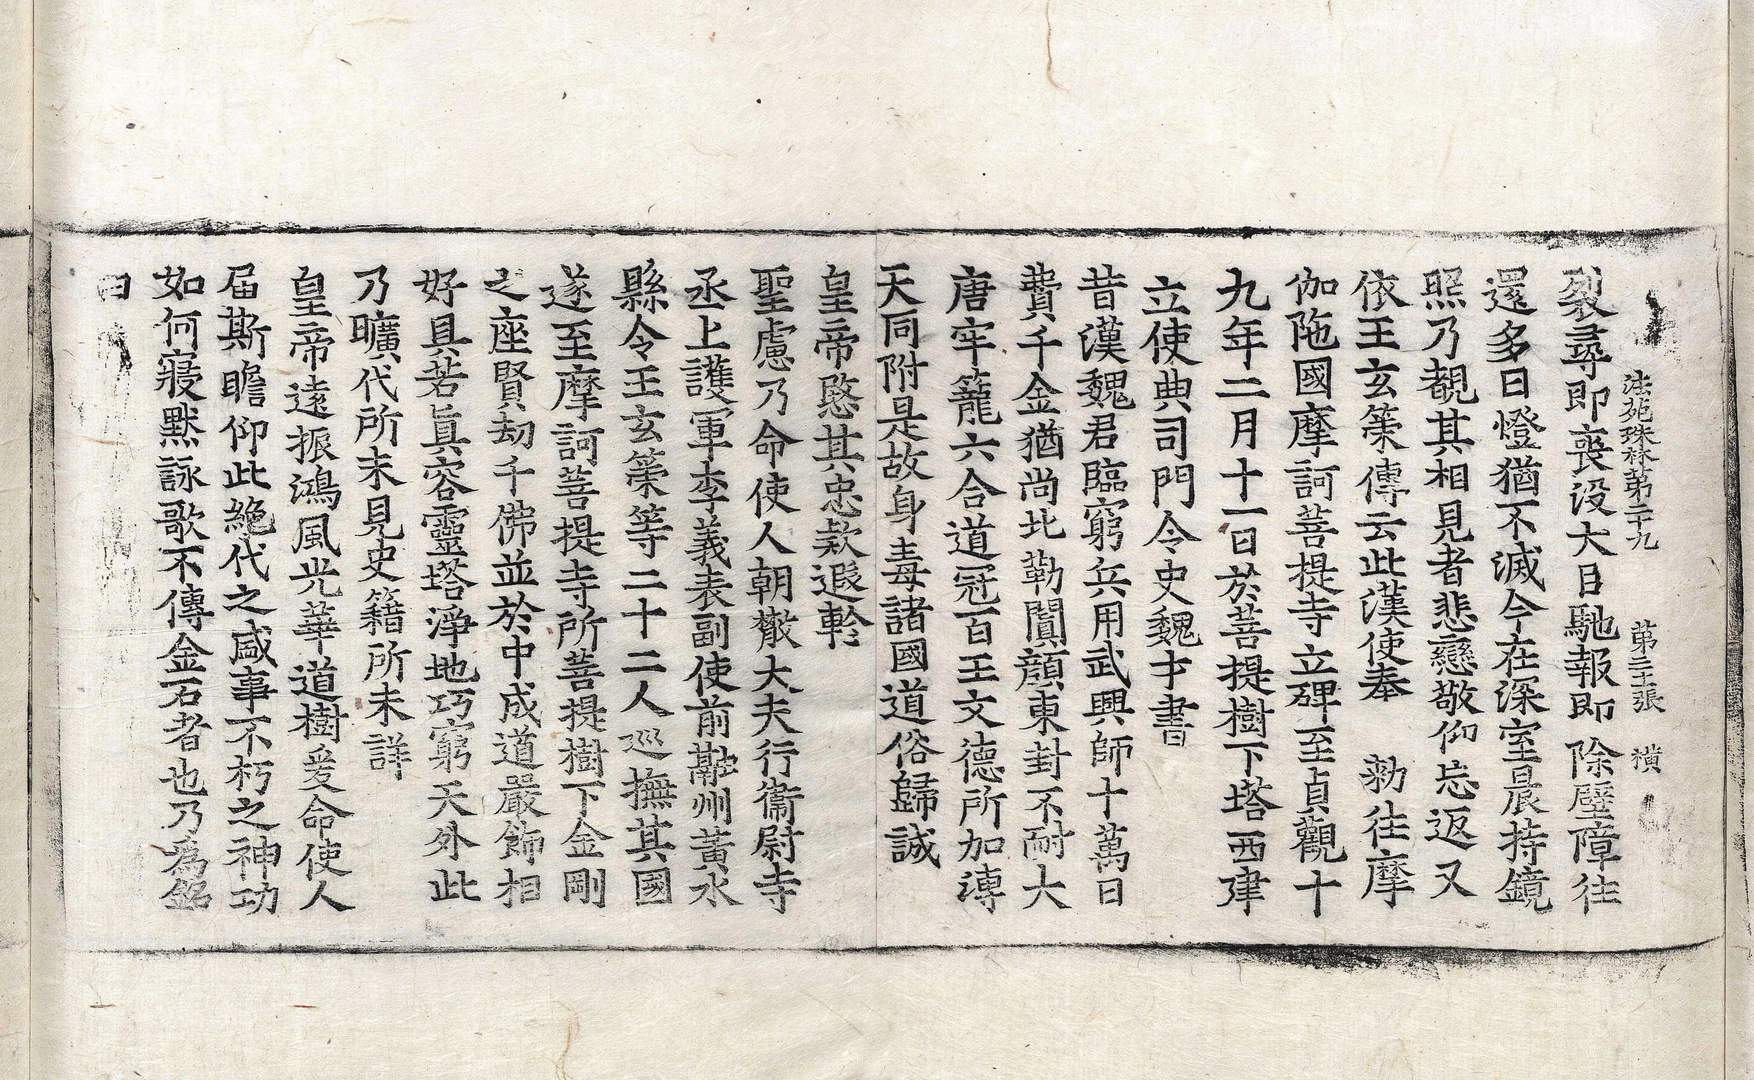 法苑珠林第二十九　第三十二張　橫
裂尋即喪沒大目馳報即除壁障往
還多日燈猶不滅今在深室晨持鏡
照乃覩其相見者悲戀敬仰忘返又
依王玄策傳云此漢使奉　勑往摩
伽陁國摩訶菩提寺立碑至貞觀十
九年二月十一日於菩提樹下塔西建
立使典司門令史魏才書
昔漢魏君臨窮兵用武興師十萬日
費千金猶尚北勒闐顏東封不耐大
唐牢籠六合道冠百王文德所加溥
天同附是故身毒諸國道俗歸誠
皇帝愍其忠款遐軫
聖慮乃命使人朝散大夫行衛尉寺
丞上護軍李義表副使前融州黃水
縣令王玄策等二十二人巡撫其國
遂至摩訶菩提寺所菩提樹下金剛
之座賢劫千佛並於中成道嚴飾相
好具若眞容靈塔淨地巧窮天外此
乃曠代所未見史籍所未詳
皇帝遠振鴻風光華道樹爰命使人
届斯瞻仰此絶代之盛事不朽之神功
如何寢默詠歌不傳金石者也乃爲銘
曰